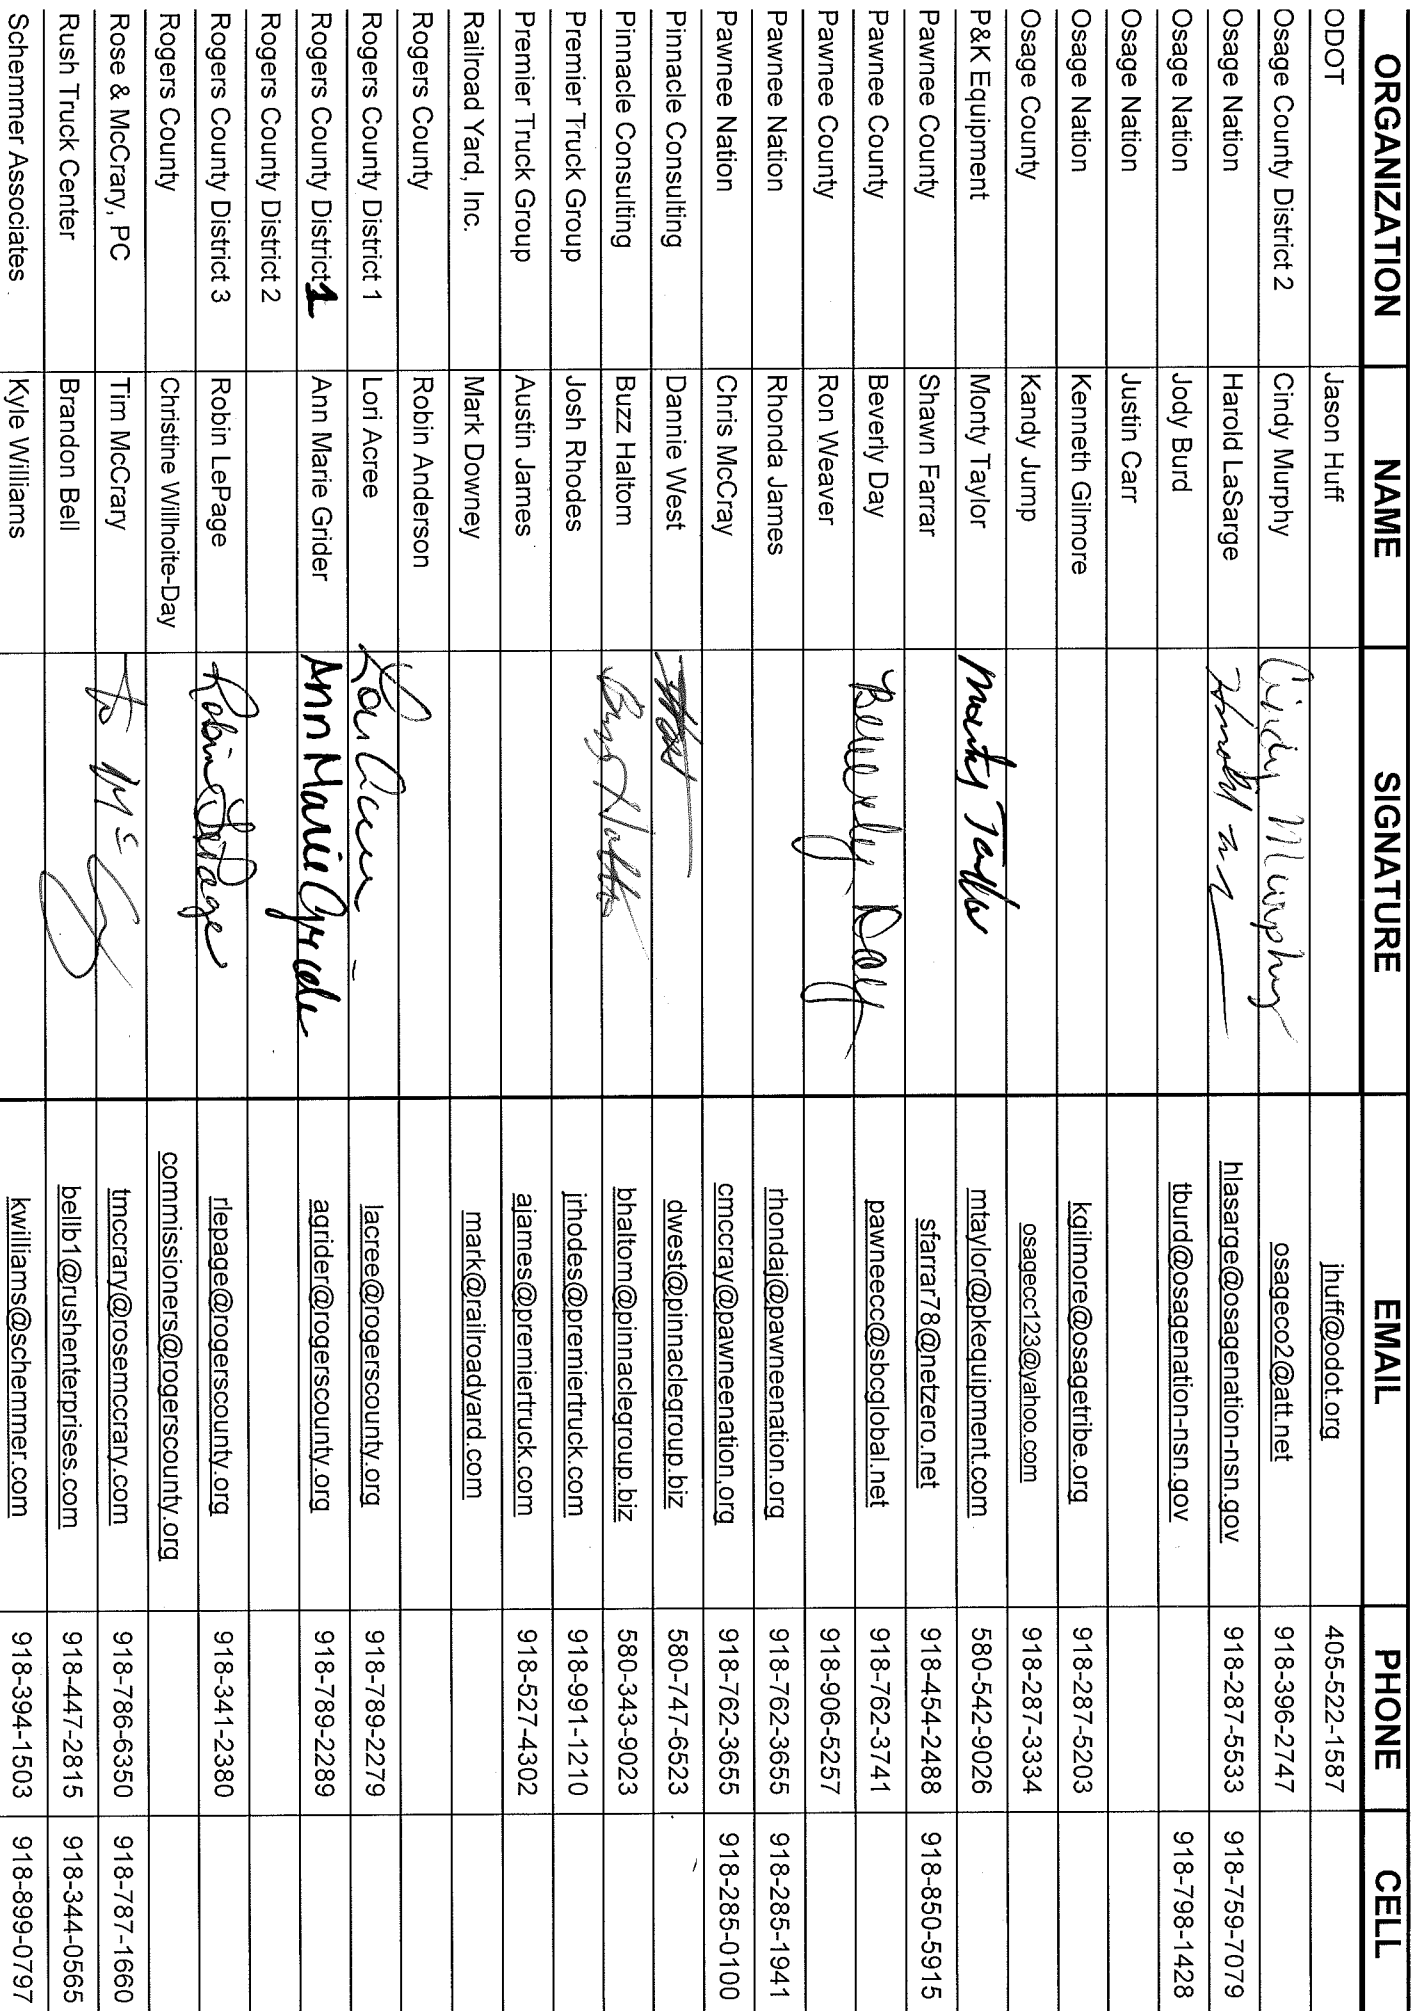 ORGANIZATION NAME SIGNATURE EMAIL PHONE CELL
ODOT Jason Huff jhuff@odot.org 405-522-1587
Osage County District 2 Cindy Murphy Cindy Murphy osageco2@att.net 918-396-2747
Osage Nation Harold LaSarge Harold hlasarge@osagenation-nsn.gov 918-287-5533 918-759-7079
Osage Nation Jody Burd tburd@osagenation-nsn.gov 918-798-1428
Osage Nation Justin Carr
Osage Nation Kenneth Gilmore kgilmore@osagetribe.org 918-287-5203
Osage County Kandy Jump osagecc123@yahoo.com 918-287-3334
P&K Equipment Monty Taylor Monty Taylor mtaylor@pkequipment.com 580-542-9026
Pawnee County Shawn Farrar sfarrar78@netzero.net 918-454-2488 918-850-5915
Pawnee County Beverly Day Beverly Day pawneecc@sbcglobal.net 918-762-3741
Pawnee County Ron Weaver 918-906-5257
Pawnee Nation Rhonda James rhondaj@pawneenation.org 918-762-3655 918-285-1941
Pawnee Nation Chris McCray cmccray@pawneenation.org 918-762-3655 918-285-0100
Pinnacle Consulting Dannie West dwest@pinnaclegroup.biz 580-747-6523
Pinnacle Consulting Buzz Haltom Buzz Haltom bhaltom@pinnaclegroup.biz 580-343-9023
Premier Truck Group Josh Rhodes jrhodes@premiertruck.com 918-991-1210
Premier Truck Group Austin James ajames@premiertruck.com 918-527-4302
Railroad Yard, Inc. Mark Downey mark@railroadyard.com
Rogers County Robin Anderson
Rogers County District 1 Lori Acree Lori Acree lacree@rogerscounty.org 918-789-2279
Rogers County District 1 Ann Marie Grider Ann Marie Grider agrider@rogerscounty.org 918-789-2289
Rogers County District 2
Rogers County District 3 Robin LePage Robin LePage rlepage@rogerscounty.org 918-341-2380
Rogers County Christine Wilhoite-Day commissioners@rogerscounty.org
Rose & McCrary, PC Tim McCrary tmccrary@rosemccrary.com 918-786-6350 918-787-1660
Rush Truck Center Brandon Bell bellb1@rushenterprises.com 918-447-2815 918-344-0565
Schemmer Associates Kyle Williams kwilliams@schemmer.com 918-394-1503 918-899-0797